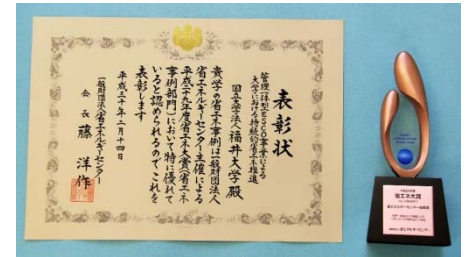 表彰状
管理一体型ESCO事業による
大学における持続的省エネ推進
国立大学法人福井大学殿
貴学の省エネ事例は一般財団法人
省エネルギーセンター主催による
平成二十九年度省エネ大賞(省エネ
事例部門)において特に優れて
いると認められるのでこれを
表彰します
平成三十年二月十四日
一般財団法人省エネルギーセンター
会長 藤 洋作
省エネ大賞